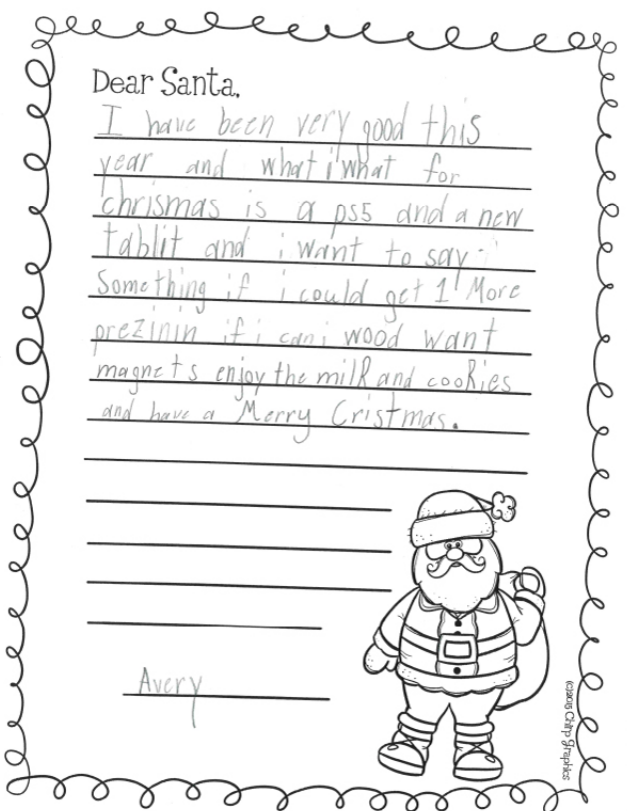 Dear Santa,
I have been very good this
year and what i what for
chrismas is a ps5 and a new
tablit and i want to say
Something if i could get 1 More
prezinin if i can i wood want
magnets enjoy the milk and cookies
and have a Merry Cristmas.
Avery
(c)2015 Chirp Graphics